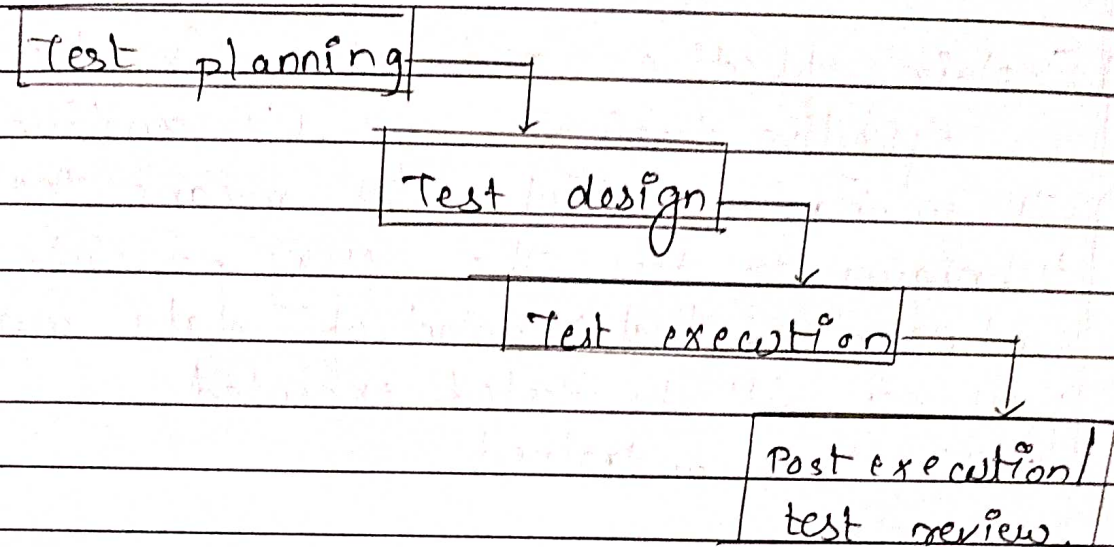 Test planning
Test design
Test execution
Post execution/
test review.